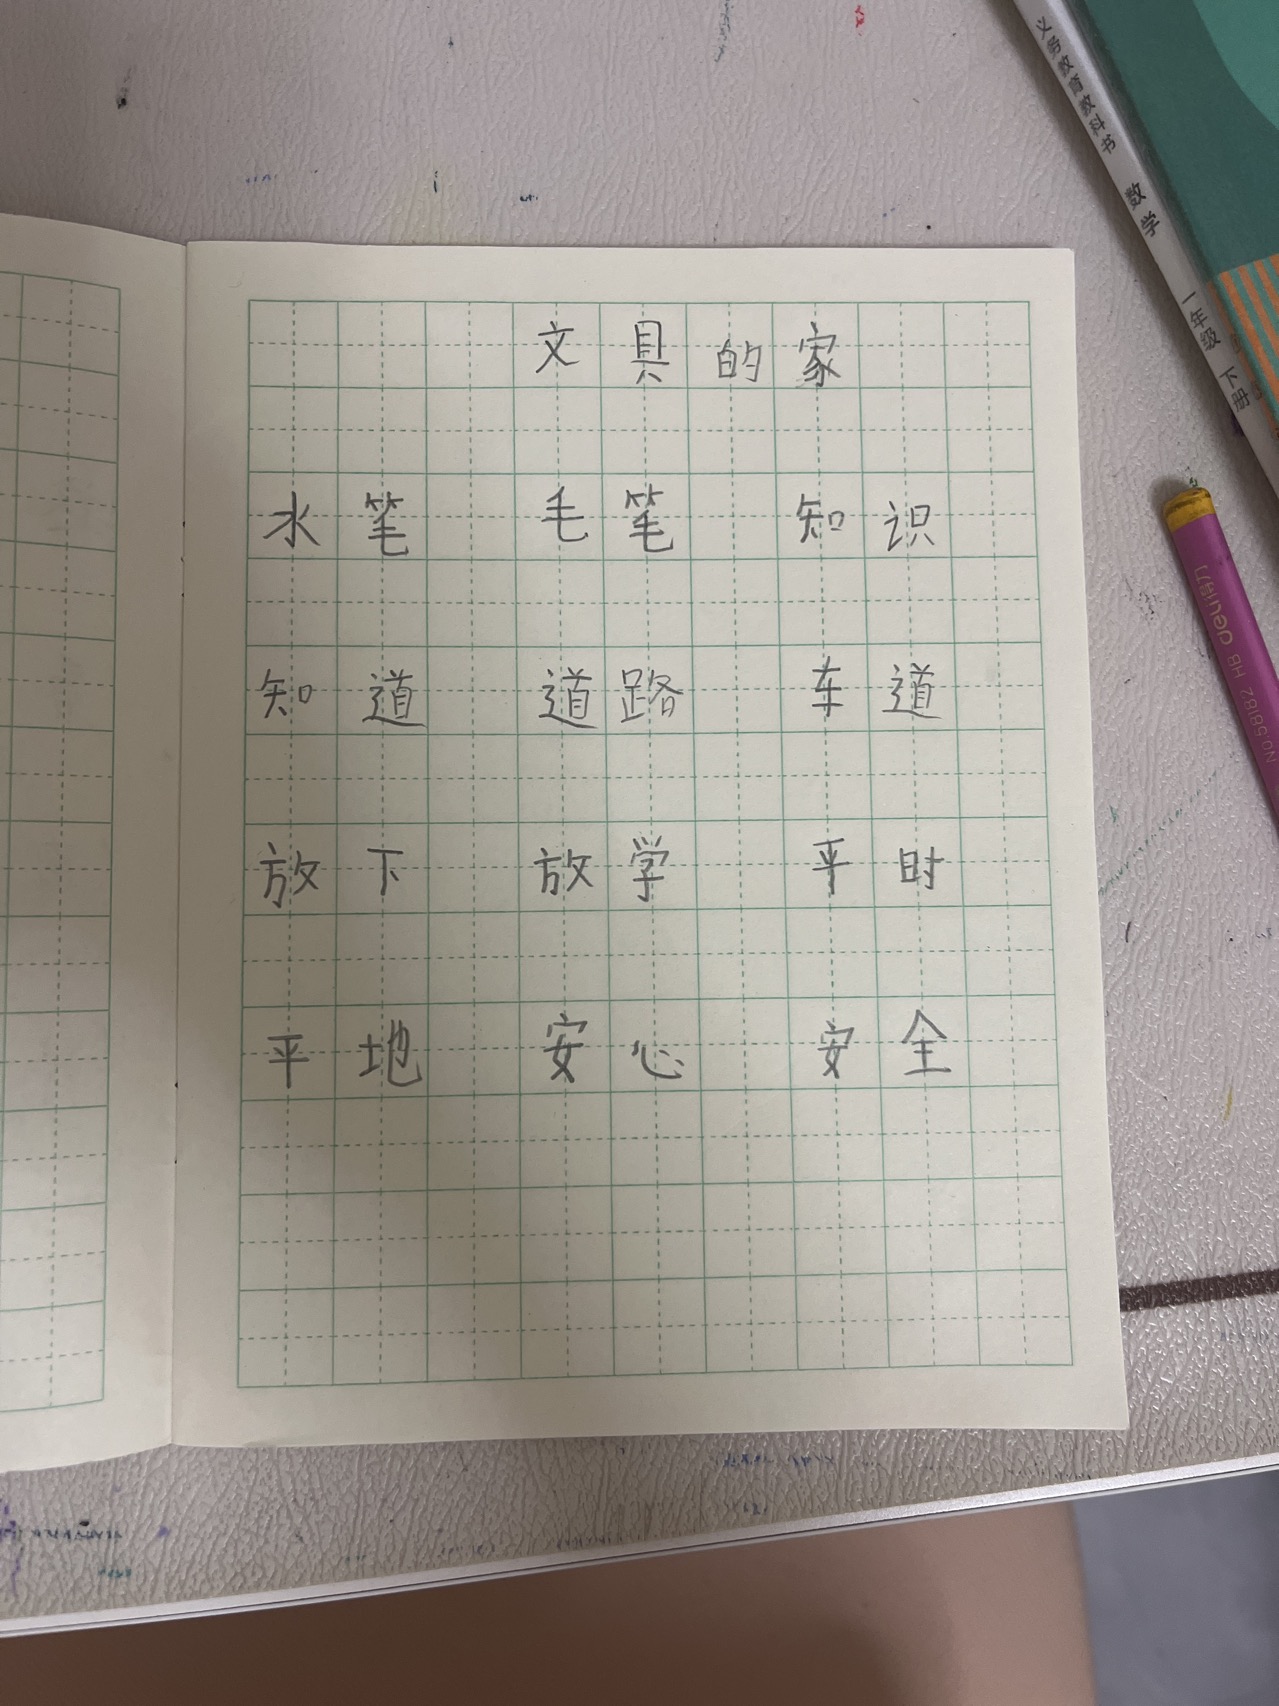 文具的家
水笔 毛笔 知识
知道 道路 车道
放下 放学 平时
平地 安心 安全
义务教育教科书 数学 一年级 下册
deli得力 HB NO.58182